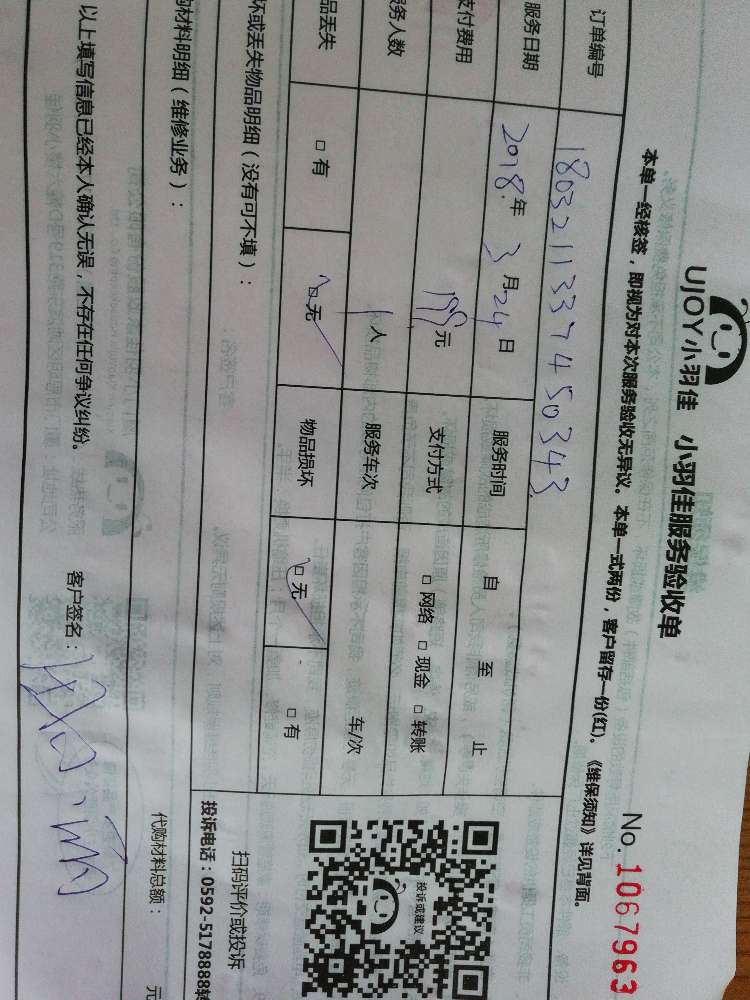 UJOY小羽佳 小羽佳服务验收单
No. 1067963
本单一经核签，即视为对本次服务验收无异议。本单一式两份，客户留存一份(红)。《维保须知》详见背面。
订单编号 180321133745034З
服务日期 2018年 3月24日 服务时间 自 至 止
支付费用 199元 支付方式 □ 网络 □ 现金 □ 转账
务人数 1人 服务车次 车/次
品丢失 □ 有 □ 无 物品损坏 □ 无 □ 有
坏或丢失物品明细（没有可不填）：
投诉或建议
扫码评价或投诉
投诉电话：0592-5178888转
材料明细（维修业务）：
代购材料总额： 元
以上填写信息已经本人确认无误，不存在任何争议纠纷。 客户签名：